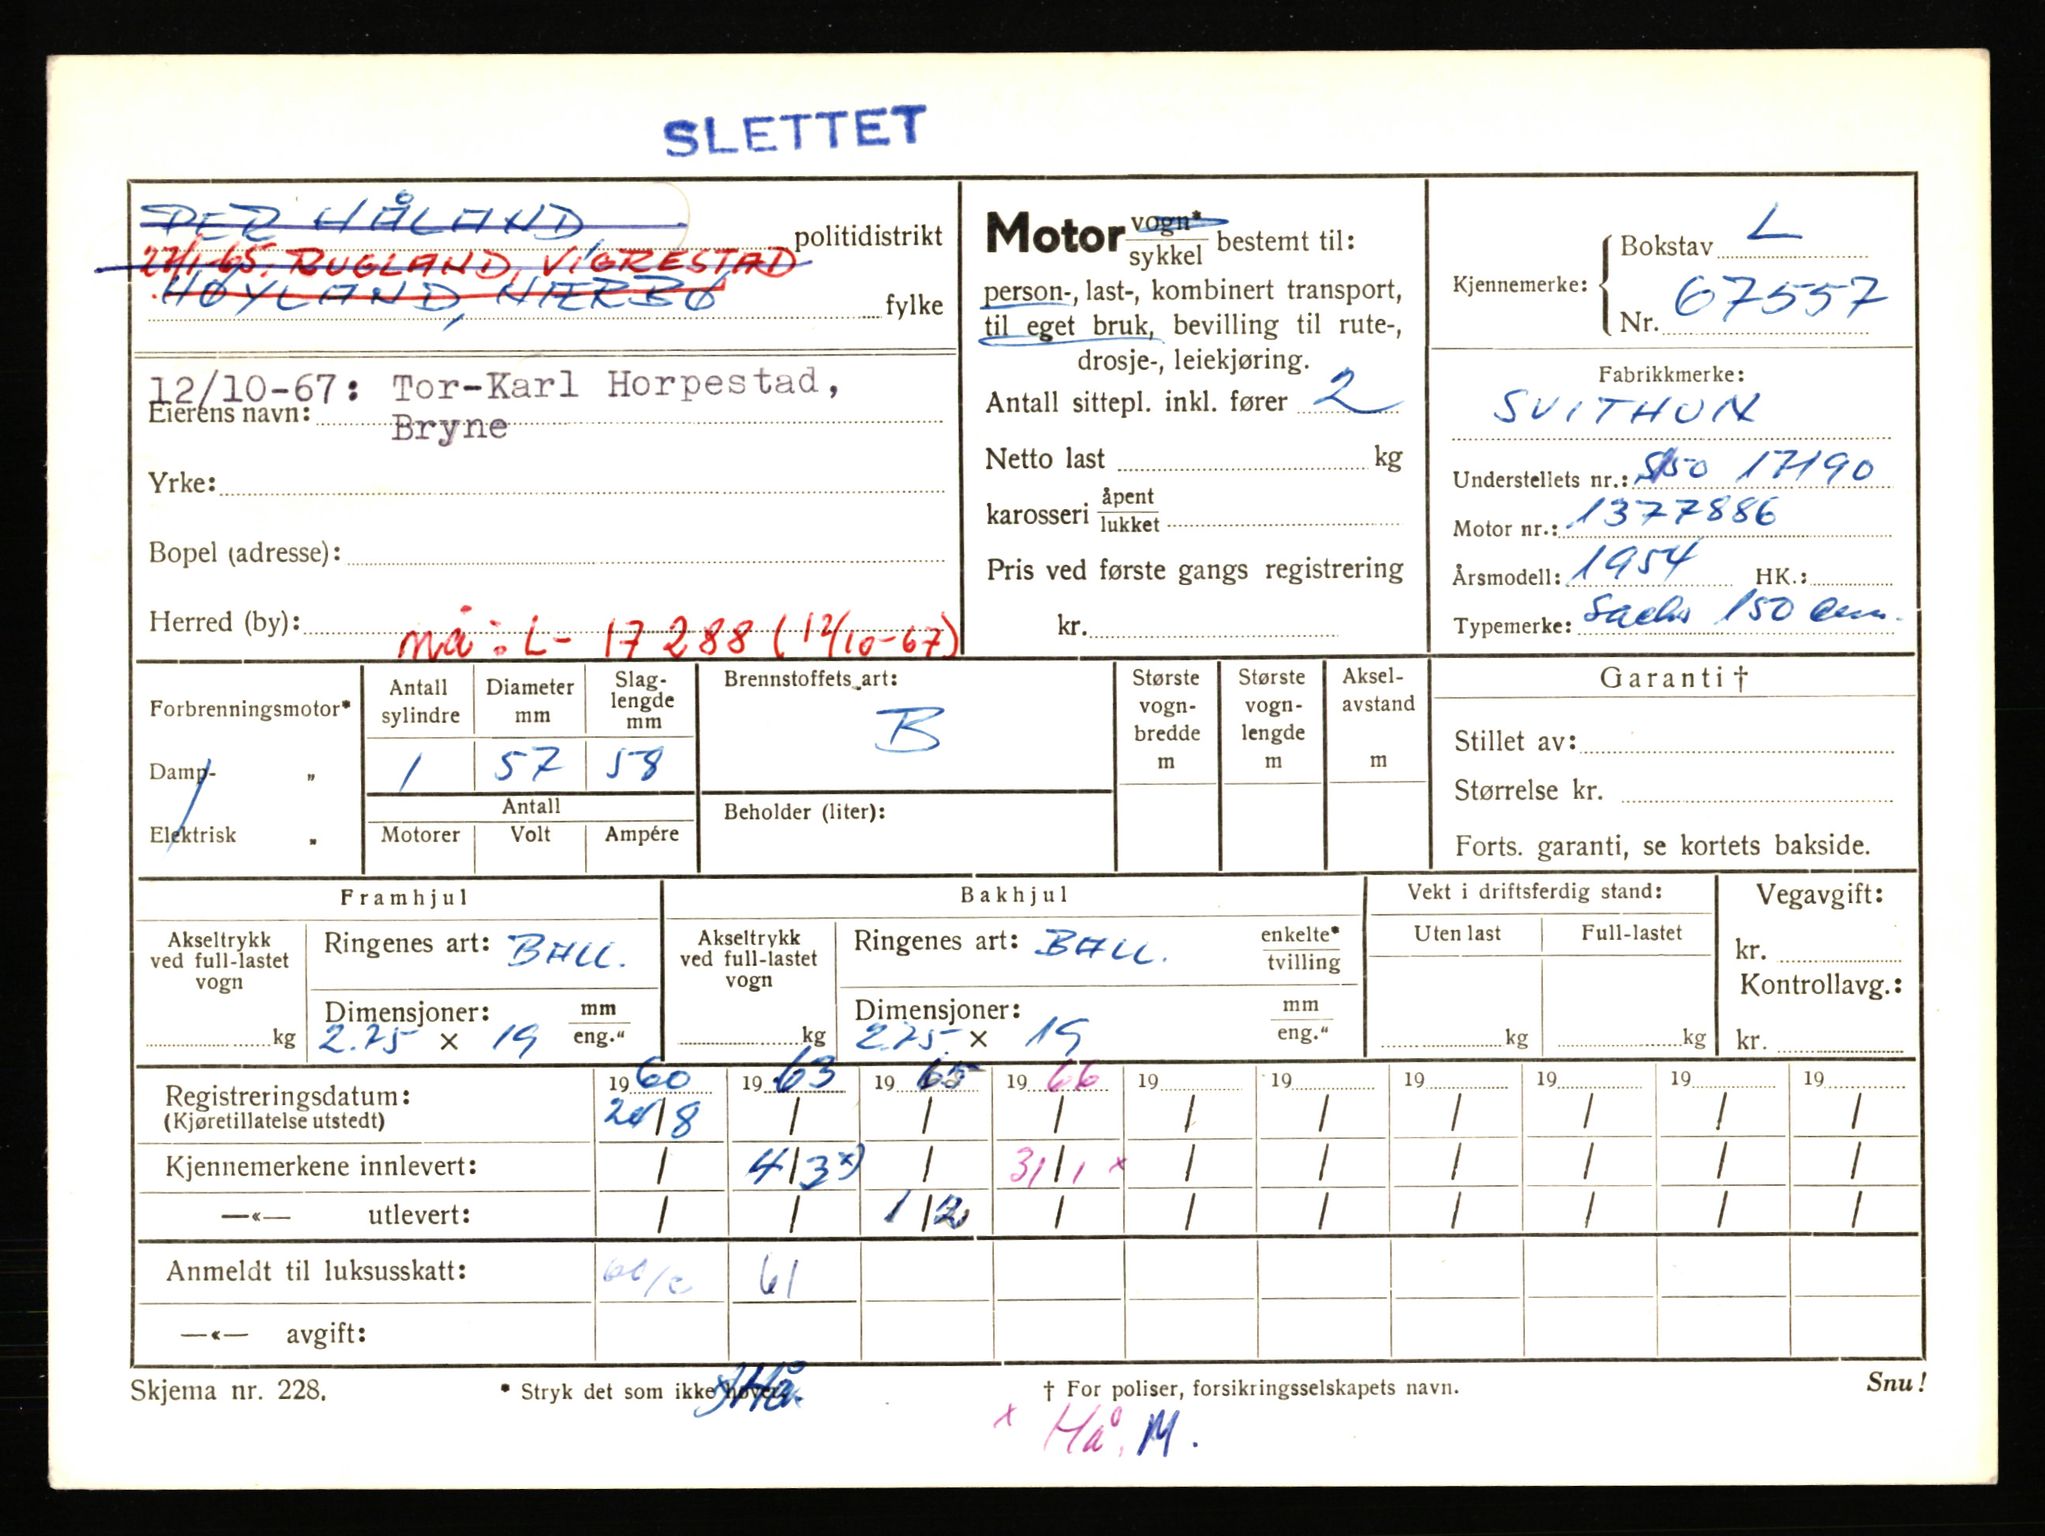 SLETTET
PER HÅLAND
politidistrikt
27/1-65. RUGLAND, VIGRESTAD
HØYLAND, NÆRBØ
fylke
12/10-67: Tor-Karl Horpestad,
Eierens navn:
Bryne
Yrke:
Bopel (adresse):
Herred (by):
nå: L- 17288 (12/10-67)
Motor vogn* sykkel bestemt til:
person-, last-, kombinert transport,
til eget bruk, bevilling til rute-,
drosje-, leiekjøring.
Antall sittepl. inkl. fører 2
Netto last kg
karosseri åpent lukket
Pris ved første gangs registrering
kr.
Kjennemerke:
Bokstav L
Nr. 67557
Fabrikkmerke:
SVITHUN
Understellets nr.: S150 17190
Motor nr.: 1377886
Årsmodell: 1954 HK.:
Typemerke: Sachs 150 ccm.
Forbrenningsmotor*
Damp- „
Elektrisk „
Antall sylindre
Diameter mm
Slag-lengde mm
1 57 58
Antall
Motorer Volt Ampére
Brennstoffets art:
B
Beholder (liter):
Største vogn-bredde m
Største vogn-lengde m
Aksel-avstand m
Garanti †
Stillet av:
Størrelse kr.
Forts. garanti, se kortets bakside.
Framhjul
Akseltrykk ved full-lastet vogn
kg
Ringenes art: BALL.
Dimensjoner: mm eng."
2.75 × 19
Bakhjul
Akseltrykk ved full-lastet vogn
kg
Ringenes art: BALL. enkelte* tvilling
Dimensjoner: mm eng."
2.75 × 19
Vekt i driftsferdig stand:
Uten last Full-lastet
kg kg
Vegavgift:
kr.
Kontrollavg.:
kr.
Registreringsdatum: 1960 1963 1965 1966 19 19 19 19 19 19
(Kjøretillatelse utstedt) / 8 / / / / / / / / /
Kjennemerkene innlevert: / 4/3 x) / 31/1 x / / / / / /
—«— utlevert: / / 1/2 / / / / / / /
Anmeldt til luksusskatt: 61
—«— avgift:
Skjema nr. 228.
* Stryk det som ikke høver.
x) Hå.
† For poliser, forsikringsselskapets navn.
Snu!
x Hå. M.